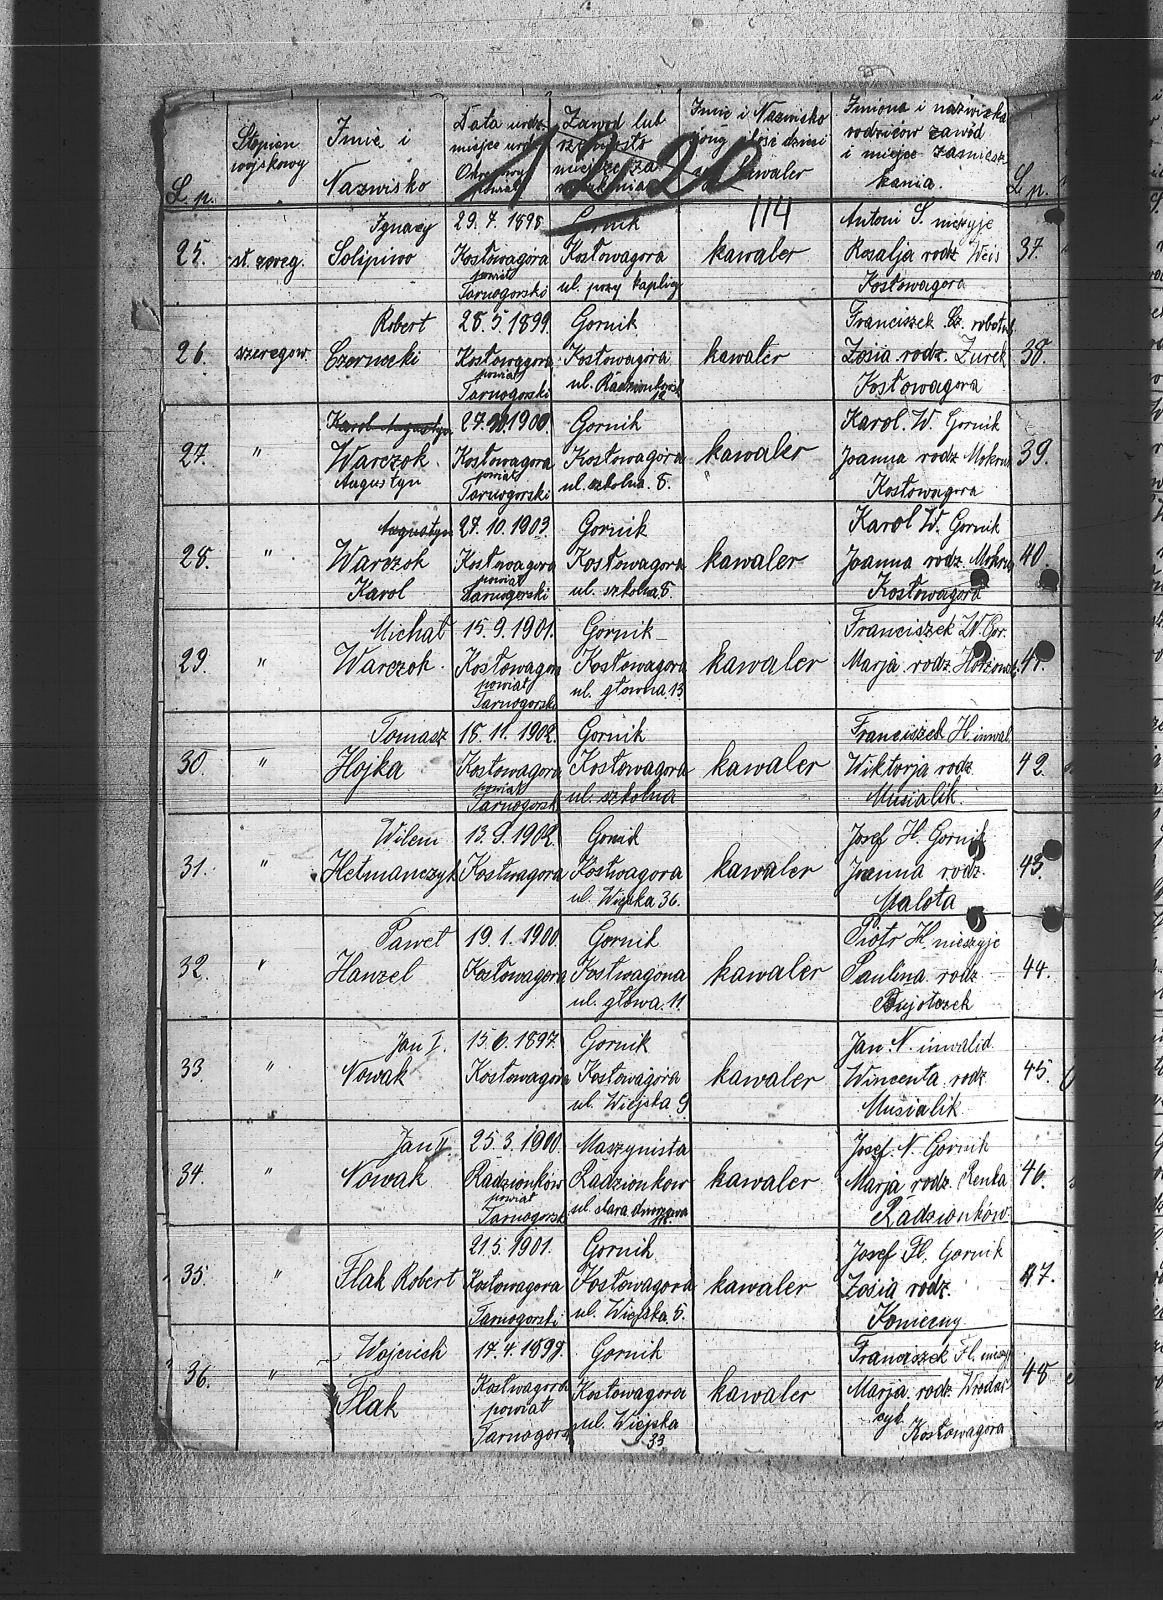 L. p.
Stopień
wojskowy
Imie i
Nazwisko
Data urdz.
miejsce urdz.
Okręgowy
powiat
Zawod lub
rzemiosło
miejsce za-
mieszkania
Imie i Nazwisko
żony ilość dzieci
kawaler
Imiona i nazwiska
rodziców zawód
i miejce zamiesz
kania.
L. p.
1220
114
25.
st. szereg.
Ignacy
Solipiwo
29. 7. 1898
Kostowagora
powiat
Tarnogorski
Gornik
Kostowagora
ul. przy kaplicy
kawaler
Antoni S. nieżyje
Rosalja rodz Weis
Kostowagora
37.
26.
szeregow.
Robert
Czernecki
28. 5. 1899.
Kostowagora
powiat
Tarnogorski
Gornik
Kostowagora
ul. Radzionkowsk
kawaler
Franciszek Cz. robotnik
Zosia rodz. Żurek
Kostowagora
38.
27.
"
Karol Augustyn
Warczok.
Augustyn
27. 10. 1900.
Kostowagora
powiat
Tarnogorski
Gornik
Kostowagora
ul. szkolna. 8.
kawaler
Karol. W. Gornik
Joanna rodz Mokrus
Kostowagora
39.
28.
"
Augustyn
Warczok
Karol
27. 10. 1903.
Kostowagora
powiat
Tarnogorski
Gornik
Kostowagora
ul. szkolna 8.
kawaler
Karol W. Gornik
Joanna rodz. Mokrus
Kostowagora
40.
29.
"
Michał
Warczok.
15. 9. 1901.
Kostowagora
powiat
Tarnogorski
Gornik
Kostowagora
ul. głowna. 13
kawaler
Franciszek W. Gor.
Marja rodz.
41.
30.
"
Tomasz
Hojka
18. 11. 1902.
Kostowagora
powiat
Tarnogorsk
Gornik
Kostowagora
ul. szkolna
kawaler
Franciszek H. inwal.
Wiktorja rodz.
Musialik.
42.
31.
"
Wilem
Hetmanczyk
13. 9. 1902.
Kostwagora
Gornik
Kostwagora
ul. Wiejska 36.
kawaler
Josef H. Gornik
Joanna rodz.
Malota
43.
32.
"
Paweł
Hanzel
19. 1. 1900.
Kostowagora
Gornik
Kostwagora
ul. głowa. 11.
kawaler
Piotr H. nieszyje
Paulina rodz
Bujoczek
44.
33.
"
Jan I.
Nowak
15. 6. 1897.
Kostowagora
Gornik
Kostowagora
ul. Wiejska 9
kawaler
Jan. N. inwalid
Wincenta rodz.
Musialik.
45.
34.
"
Jan II.
Nowak
25. 3. 1900.
Radzionków
powiat
Tarnogorsk
Maszynista
Radzionkow
ul. stara dworcowa
kawaler
Josef. N. Gornik
Marja rodz. Renka
Radzionków.
46.
35.
"
Flak Robert
21. 5. 1901.
Kostowagora
Tarnogorski
Gornik
Kostowagora
ul. Wiejska. 5.
kawaler
Josef Fl. Gornik
Zosia rodz.
Konieczny
47.
36.
"
Wojciech
Flak
17. 4. 1898.
Kostwagora
powiat
Tarnogorsk
Gornik
Kostowagora
ul. Wiejska
33
kawaler
Franciszek Fl. nieżyj
Marja rodz
Kostowagora
48